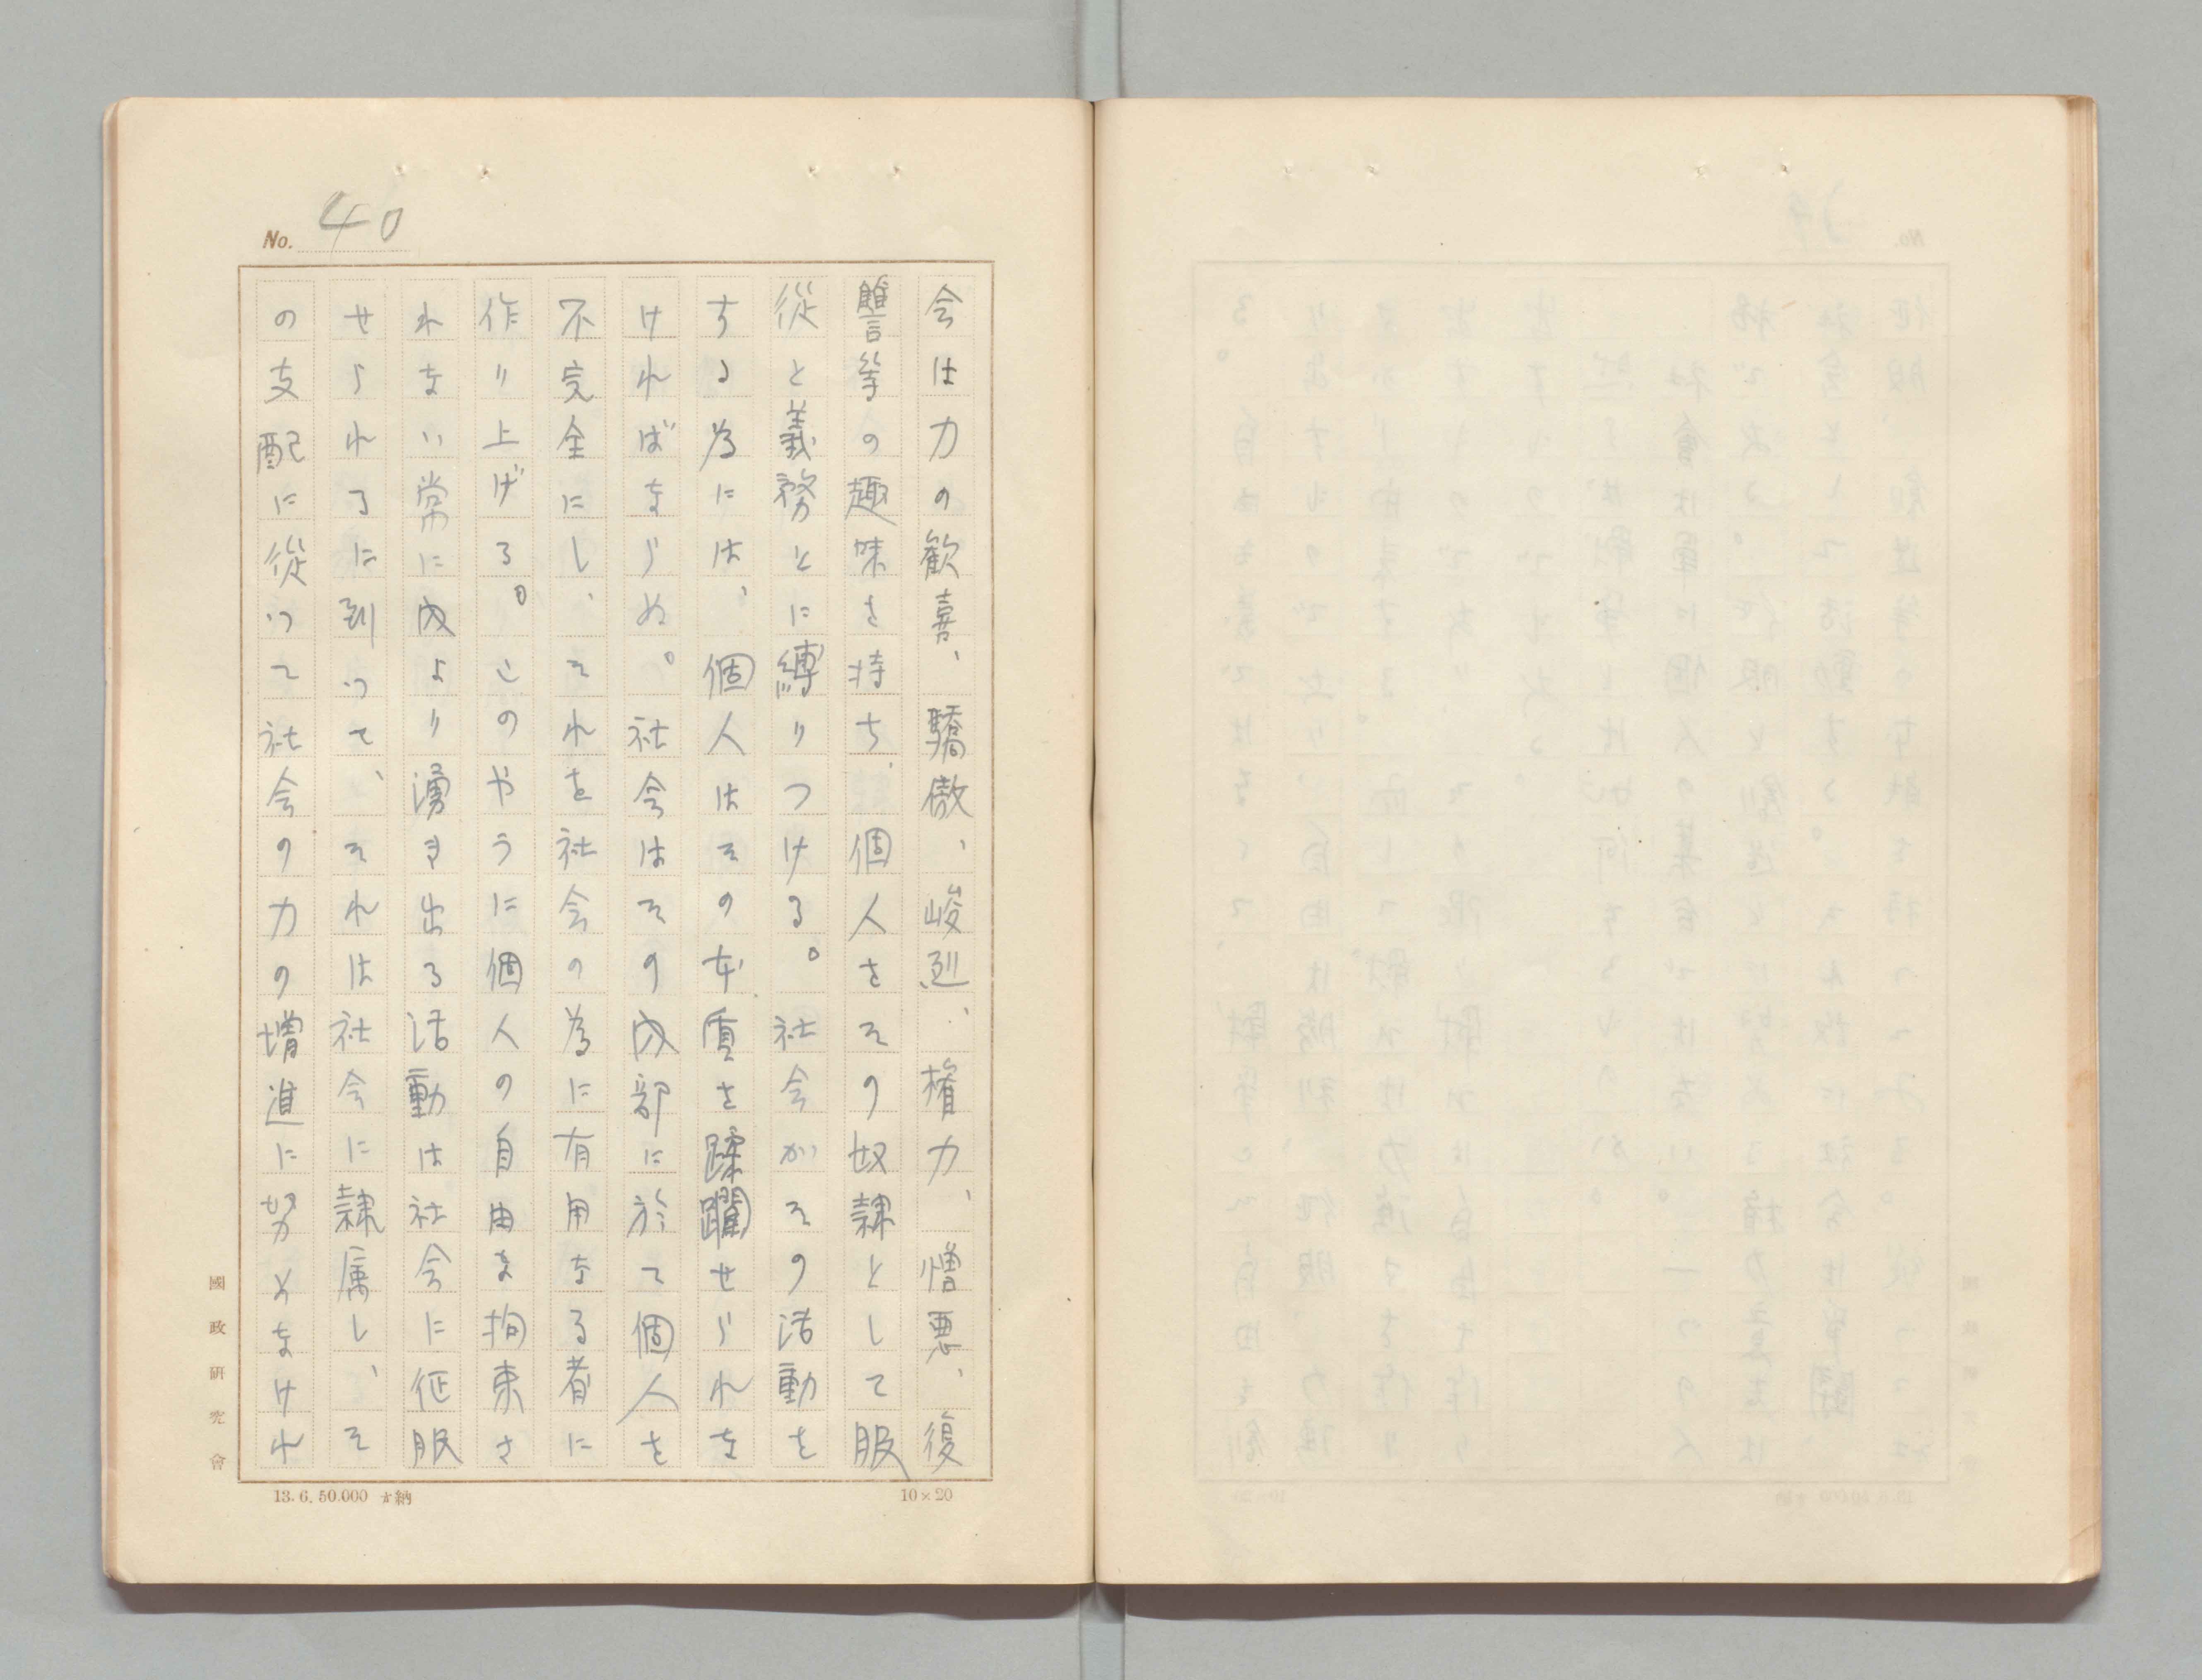 No. 40
会は力の歓喜、驕傲、峻烈、権力、憎悪、復
讐等の趣味を持ち、個人をその奴隷として服
従と義務とに縛りつける。社会がその活動を
する為には、個人はその本質を蹂躙せられな
ければならぬ。社会はその内部に於て個人を
不完全にし、それを社会の為に有用なる者に
作り上げる。このやうに個人の自由は拘束さ
れない常に内より湧き出る活動は社会に征服
せられるに到つて、それは社会に隷属し、そ
の支配に従つて社会の力の増進に努めなけれ
國政研究會
13.6.50.000 納
10×20